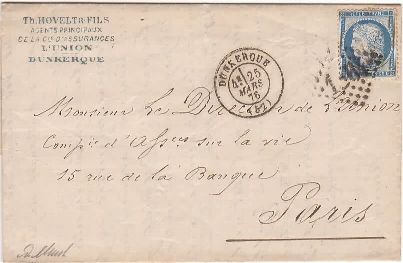 TH. HOVELT & FILS
AGENTS PRINCIPAUX
DE LA CIE D'ASSURANCES
L'UNION
DUNKERQUE
DUNKERQUE
25
MARS
76
Monsieur Le Directeur de L'Union
Compie d'Assces sur la vie
15 rue de la Banque
Paris